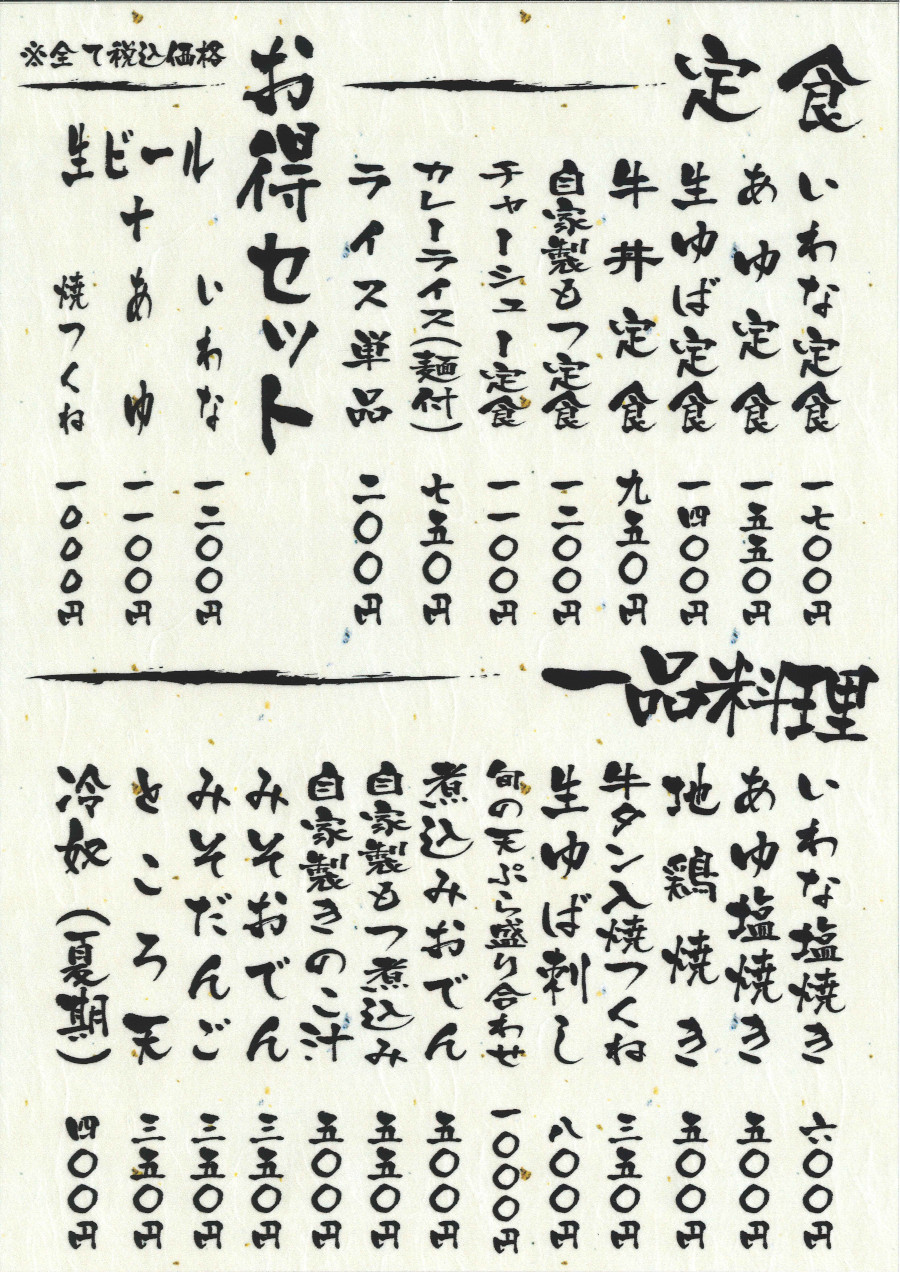 定食
いわな定食 一七〇〇円
あゆ定食 一五五〇円
生ゆば定食 一四〇〇円
牛丼定食 九五〇円
自家製もつ定食 一二〇〇円
チャーシュー定食 一一〇〇円
カレーライス(麺付) 七五〇円
ライス単品 二〇〇円
お得セット
※全て税込価格
生ビール
+
いわな 一二〇〇円
あゆ 一一〇〇円
焼つくね 一〇〇〇円
一品料理
いわな塩焼き 六〇〇円
あゆ塩焼き 五〇〇円
地鶏焼き 五〇〇円
牛タン入焼つくね 三五〇円
生ゆば刺し 八〇〇円
旬の天ぷら盛り合わせ 一〇〇〇円
煮込みおでん 五〇〇円
自家製もつ煮込み 五五〇円
自家製きのこ汁 五〇〇円
みそおでん 三五〇円
みそだんご 三五〇円
ところ天 三五〇円
冷奴(夏期) 四〇〇円